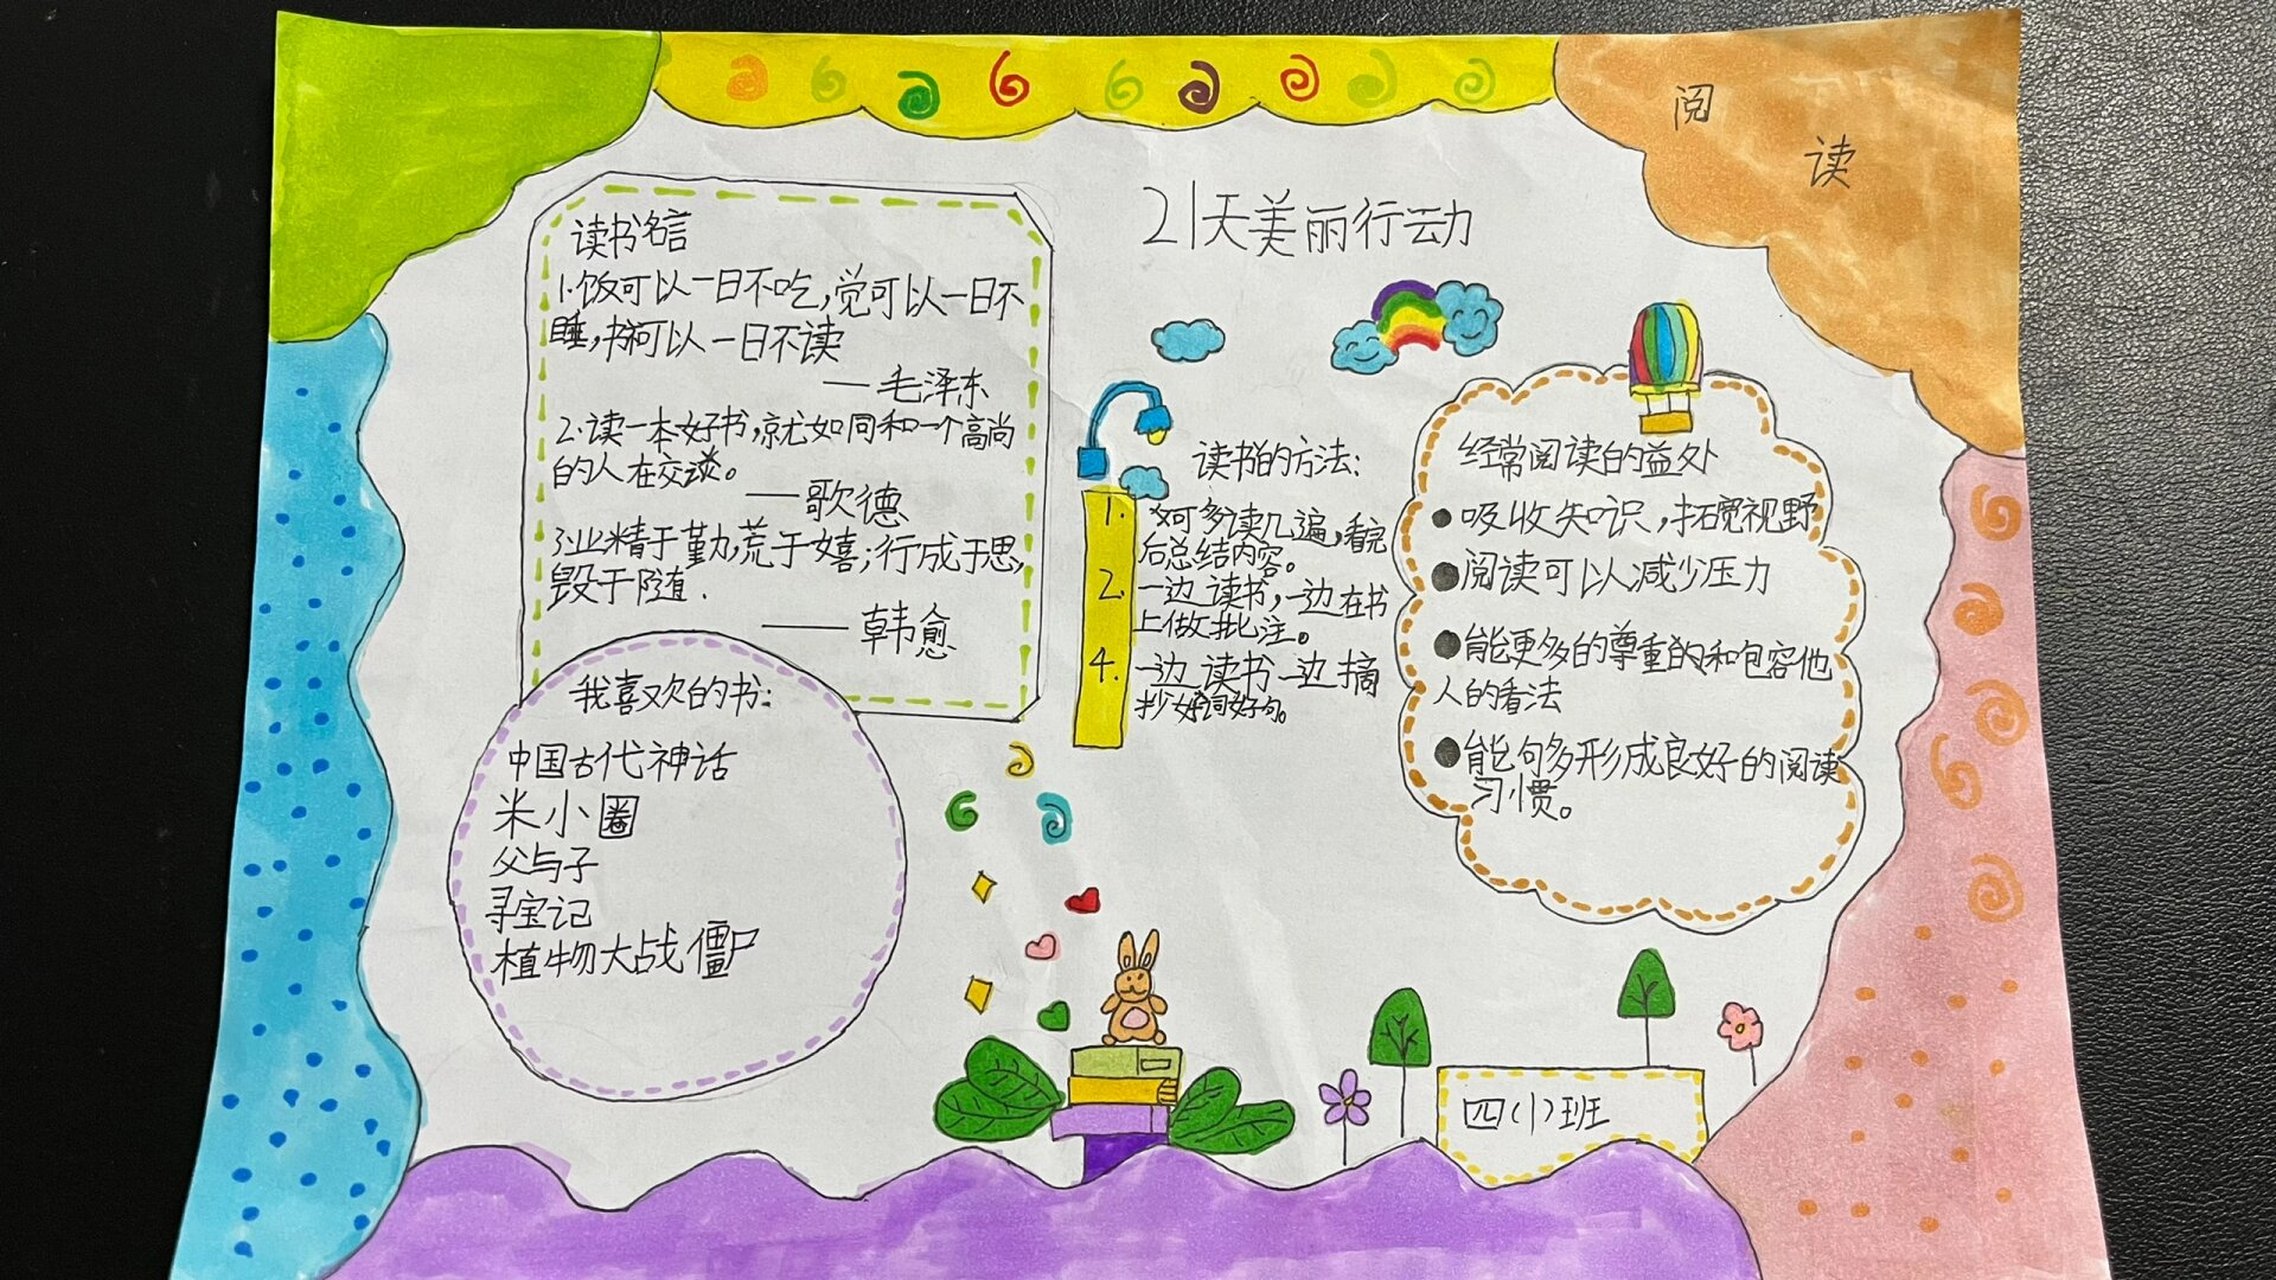 阅
读
21天美丽行动
读书名言
1.饭可以一日不吃,觉可以一日不
睡,书可以一日不读
——毛泽东
2.读一本好书,就尤如同和一个高尚
的人在交谈。
——歌德
3.业精于勤,荒于嬉;行成于思,
毁于随.
——韩愈
我喜欢的书:
中国古代神话
米小圈
父与子
寻宝记
植物大战僵尸
读书的方法:
1. 多读几遍,看完
后总结内容。
2. 一边读书,一边在书
上做批注。
4. 一边读书一边摘
抄好词好句。
经常阅读的益处
●吸收知识,拓宽视野
●阅读可以减少压力
●能更多的尊重的和包容他
人的看法
●能句多形成良好的阅读
习惯。
四(1)班